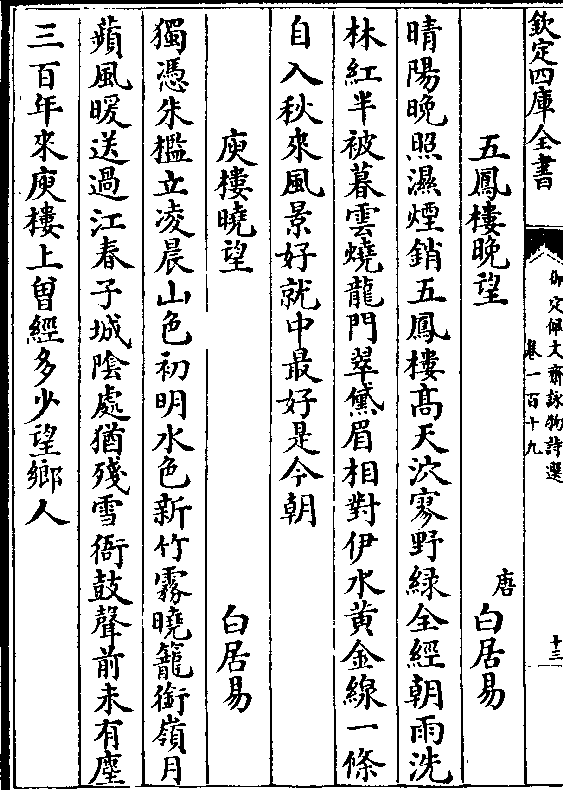 欽定四庫全書
御定佩文齋詠物詩選
卷一百十九
十三
五鳳樓晚望
唐
白居易
晴陽晚照濕煙銷五鳳樓高天泬寥野緑全經朝雨洗
林紅半被暮雲燒龍門翠黛眉相對伊水黄金線一條
自入秋來風景好就中最好是今朝
庾樓曉望
白居易
獨憑朱檻立凌晨山色初明水色新竹霧曉籠銜嶺月
蘋風暖送過江春子城陰處猶殘雪衙鼓聲前未有塵
三百年來庾樓上曽經多少望鄉人